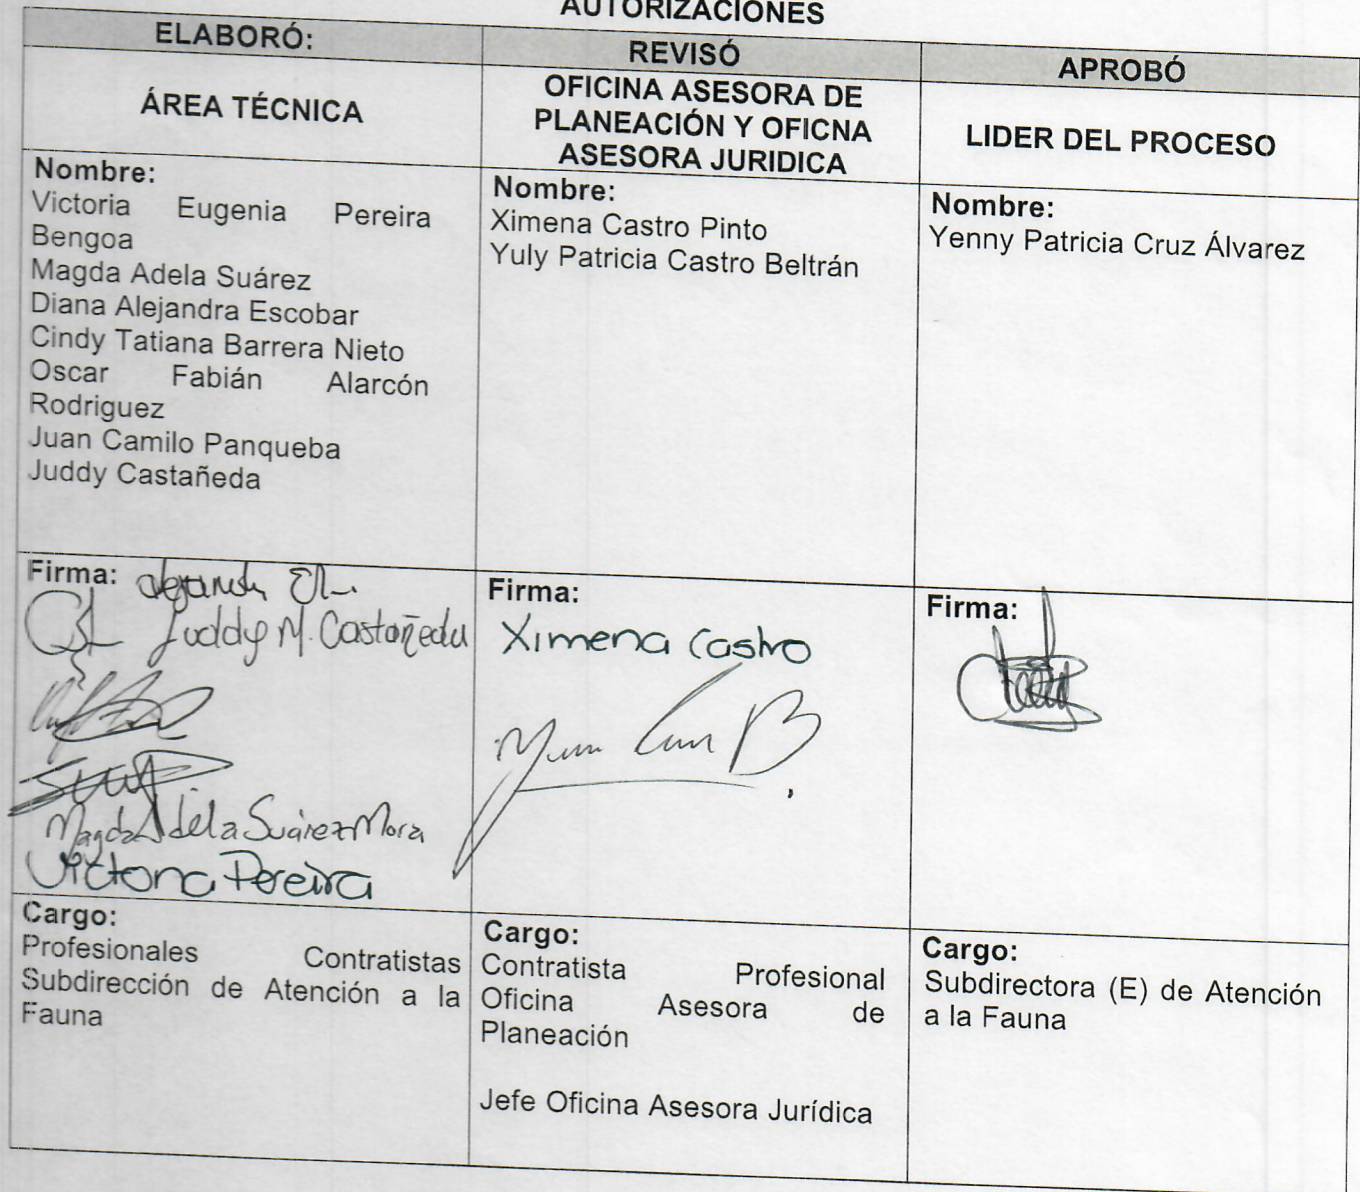 AUTORIZACIONES
ELABORÓ:
REVISÓ
APROBÓ
ÁREA TÉCNICA
OFICINA ASESORA DE
PLANEACIÓN Y OFICNA
ASESORA JURIDICA
LIDER DEL PROCESO
Nombre:
Victoria Eugenia Pereira
Bengoa
Magda Adela Suárez
Diana Alejandra Escobar
Cindy Tatiana Barrera Nieto
Oscar Fabián Alarcón
Rodriguez
Juan Camilo Panqueba
Juddy Castañeda
Nombre:
Ximena Castro Pinto
Yuly Patricia Castro Beltrán
Nombre:
Yenny Patricia Cruz Álvarez
Firma:
Juddy M. Castañeda
Magda Adela Suárez Mora
Victoria Pereira
Firma:
Ximena Castro
Firma:
Cargo:
Profesionales Contratistas
Subdirección de Atención a la
Fauna
Cargo:
Contratista Profesional
Oficina Asesora de
Planeación
Jefe Oficina Asesora Jurídica
Cargo:
Subdirectora (E) de Atención
a la Fauna